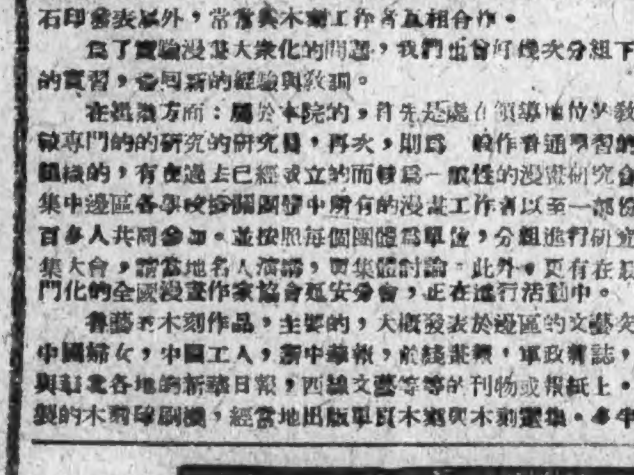 石印發表以外，常常與木刻工作者互相合作。
爲了實驗漫畫大衆化的問題，我們也曾有幾次分組下
的實習，得到新的經驗與敎訓。
在組織方面：屬於本院的，首先是處在領導地位的敎
專門的的研究的研究員，再次，則爲一般作普通學習的
組織的，有在過去已經成立的而轉爲一般性的漫畫研究會
集中邊區各學校機關團體中所有的漫畫工作者以至一部份
百多人共同參加。並按照每個團體爲單位，分組進行研究
集大會，請當地名人演講，與集體討論。此外，更有在
門化的全國漫畫作家協會延安分會，正在進行活動中。
魯藝 木刻作品，主要的，大概發表於邊區的文藝突
中國婦女，中國工人，新中華報，前綫畫報，軍政雜誌，
與 各地的新華日報，西線文藝等等的刊物或報紙上。
製的木刻印刷機，經常地出版單頁木刻與木刻選集。 年